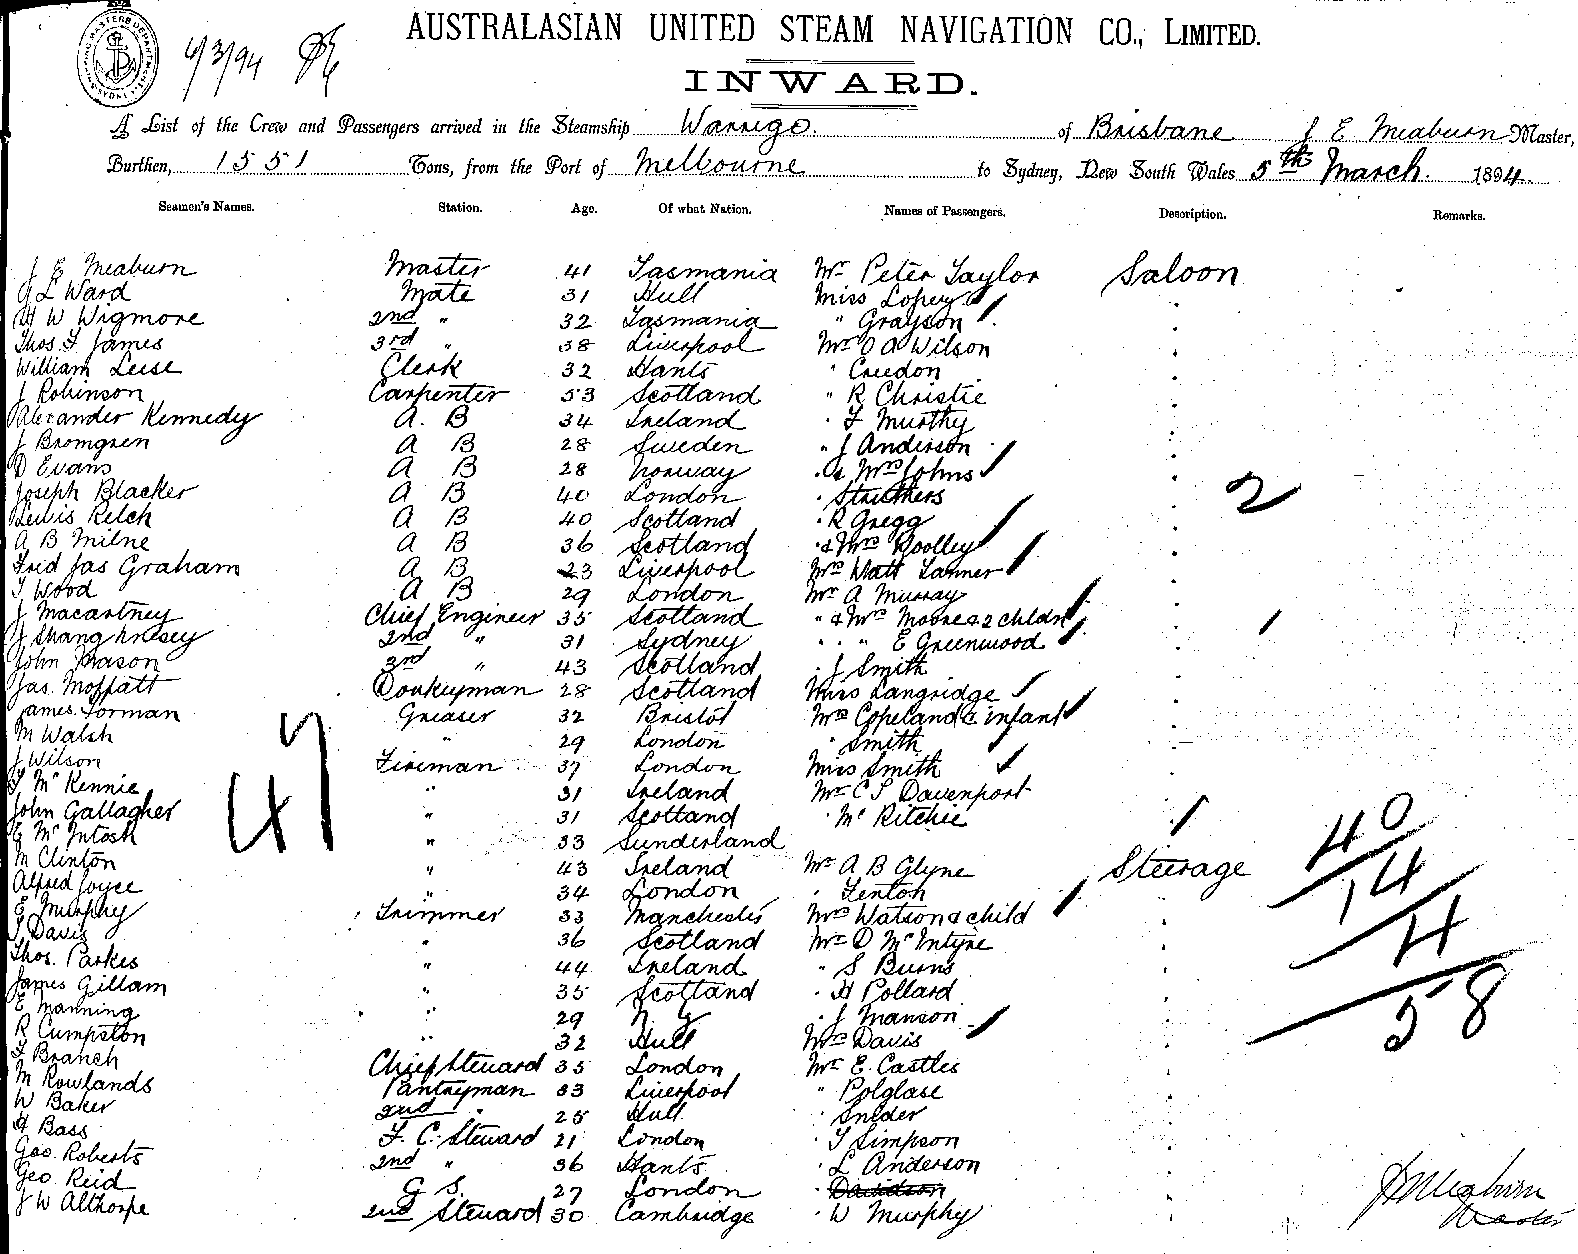 6/3/94
AUSTRALASIAN UNITED STEAM NAVIGATION CO., LIMITED.
INWARD.
A List of the Crew and Passengers arrived in the Steamship Warrego. of Brisbane J E Meaburn Master,
Burthen, 1551 Tons, from the Port of Melbourne to Sydney, New South Wales 5th March. 1894.
Seamen's Names. Station. Age. Of what Nation. Names of Passengers. Description. Remarks.
J E Meaburn Master 41 Tasmania Mr Peter Taylor Saloon
L Ward Mate 31 Hull Miss Lopey
H W Wigmore 2nd " 32 Tasmania " Grayson
Thos. F. James 3rd " 38 Liverpool Mr O A Wilson
William Leise Clerk 32 Hants " Creedon
J Robinson Carpenter 53 Scotland " R Christie
Alexander Kennedy A. B 34 Ireland " F Murthy
J Bromgren A B 28 Sweden " J Anderson
D Evans A B 28 Norway " & Mrs Johns
Joseph Blacker A B 40 London " Struthers
Lewis Relch A B 40 Scotland " R Gregg 2
A B Milne A B 36 Scotland " & Mrs Woolley
Fred Jas Graham A B 23 Liverpool Mrs Watt Tanner
T Wood A B 29 London Mr A Murray
J Macartney Chief Engineer 35 Scotland " & Mrs Moore & 2 chldn
J Shanghnesey 2nd " 31 Sydney " " " E Greenwood
John Mason 3rd " 43 Scotland " J Smith
Jas. Moffatt Donkeyman 28 Scotland Miss Langridge
James Forman Greaser 32 Bristol Mrs Copeland & infant
M Walsh " 29 London " Smith
J Wilson Fireman 37 London Miss Smith
T McKennie " 31 Ireland Mr C S Davenport
John Gallagher " 31 Scotland " McRitchie
G McIntosh " 33 Sunderland
M Clinton " 43 Ireland Mr A B Glyne Steerage
Alfred Joyce " 34 London " Fenton
E Murphy Trimmer 33 Manchester Mrs Watson & child
T Davis " 36 Scotland Mr D McIntyre
Thos. Parkes " 44 Ireland " S Burns
James Gillam " 35 Scotland " H Pollard
E Manning " 29 N Z " J Manson
R Cumpston " 32 Hull Mrs Davis
F Branch Chief Steward 35 London Mr E. Castles
M Rowlands Pantryman 33 Liverpool " Polglase
W Baker 2nd " 25 Hull " Snider
H Bass F. C. Steward 21 London " T Simpson
Geo. Roberts 2nd " 36 Hants " L Anderson
Geo Reid G S. 27 London " Davidson
J W Althorpe 2nd Steward 30 Cambridge " W Murphy
47
40
14
4
58
J E Meaburn
Master